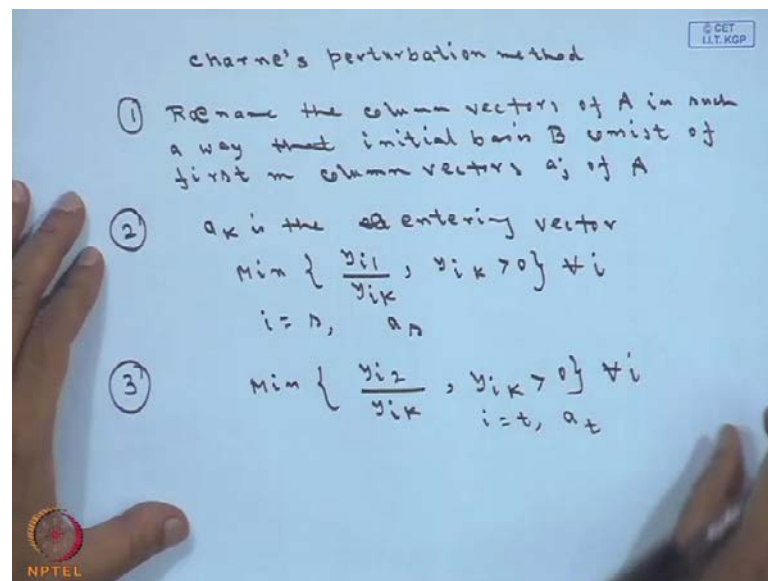 © CET
I.I.T. KGP
charne's perturbation method
① Rename the column vectors of A in such
a way that initial basis B consist of
first m column vectors aj of A
② aK is the entering vector
Min { yi1 / yiK , yiK > 0 } ∀ i
i = s, as
③ Min { yi2 / yiK , yiK > 0 } ∀ i
i = t, at
NPTEL